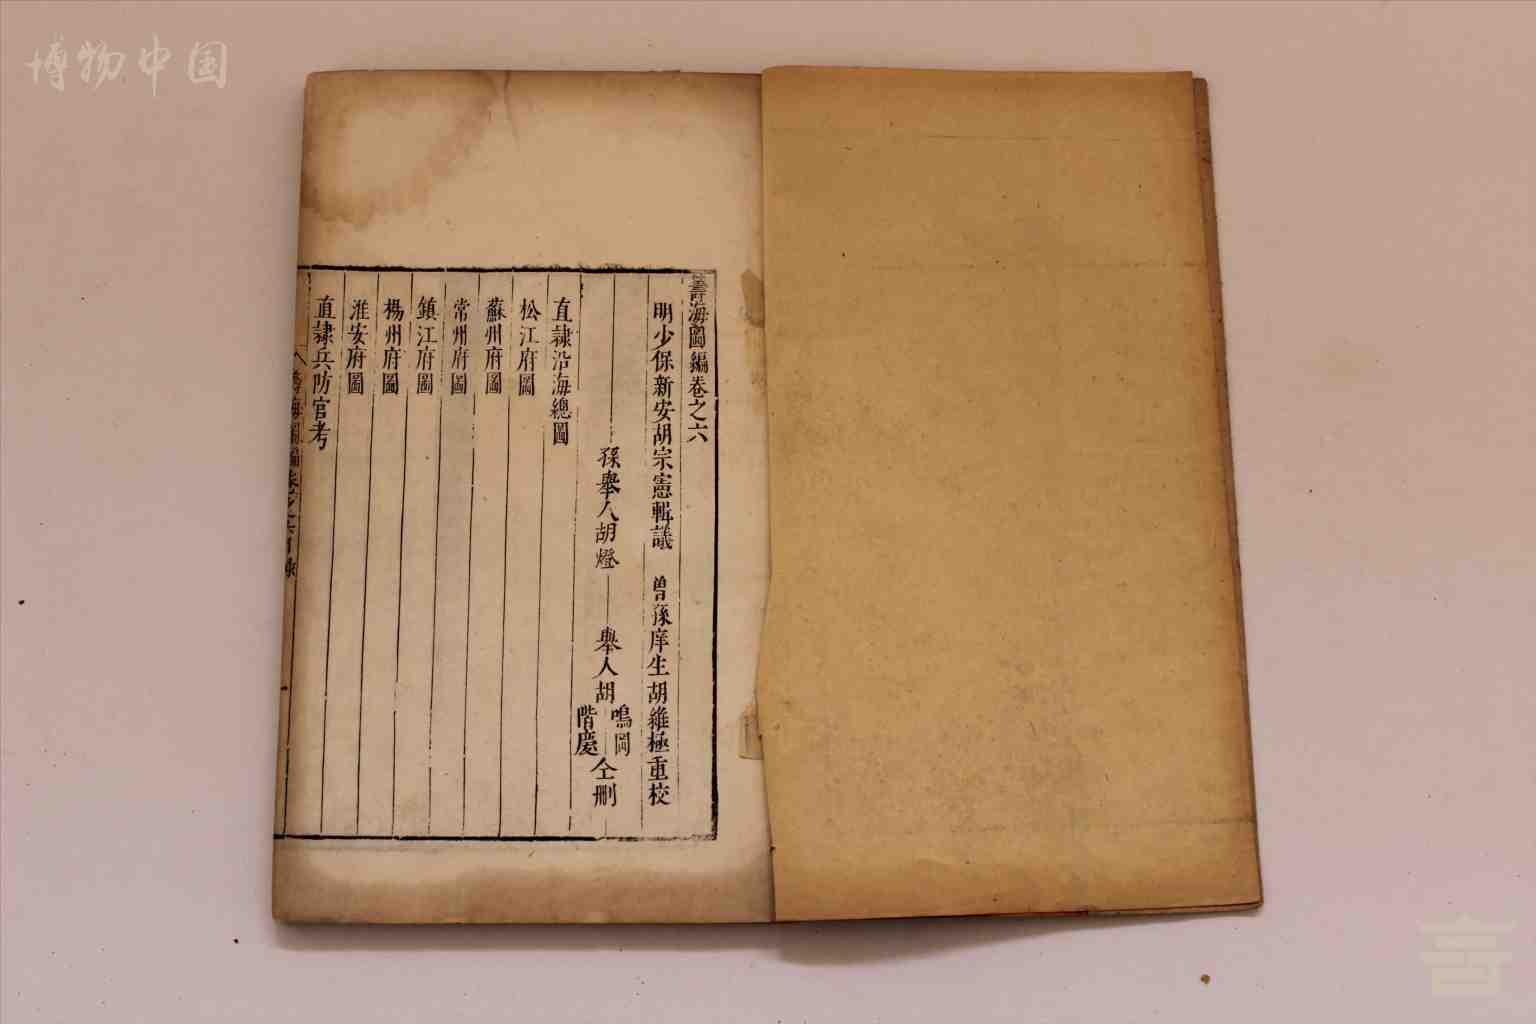 博物中国
籌海圖編卷之六
明少保新安胡宗憲輯議 曾孫庠生胡維極重校
孫舉人胡燈 舉人胡鳴岡階慶仝刪
直隸沿海總圖
松江府圖
蘇州府圖
常州府圖
鎮江府圖
楊州府圖
淮安府圖
直隸兵防官考
籌海圖編卷之六目錄